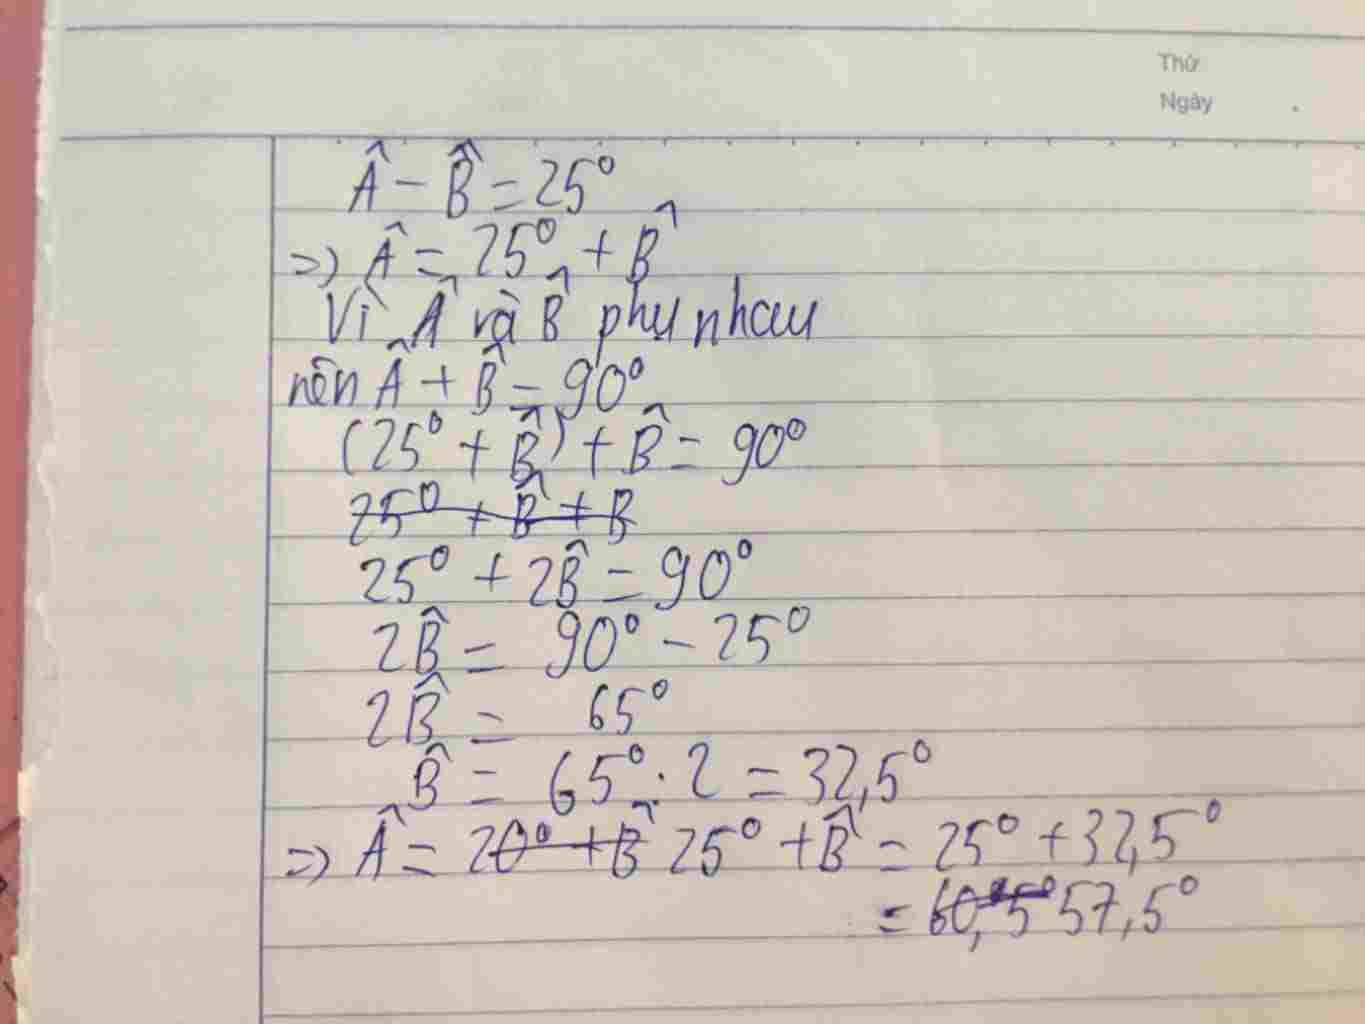 Thứ
Ngày
Â - B̂ = 25°
=) Â = 25° + B̂
Vì Â và B̂ phụ nhau
nên Â + B̂ = 90°
(25° + B̂) + B̂ = 90°
25° + B̂ + B
25° + 2B̂ = 90°
2B̂ = 90° - 25°
2B̂ = 65°
B̂ = 65° . 2 = 32,5°
=) Â = 20° + B̂ 25° + B̂ = 25° + 32,5°
= 60,5° 57,5°